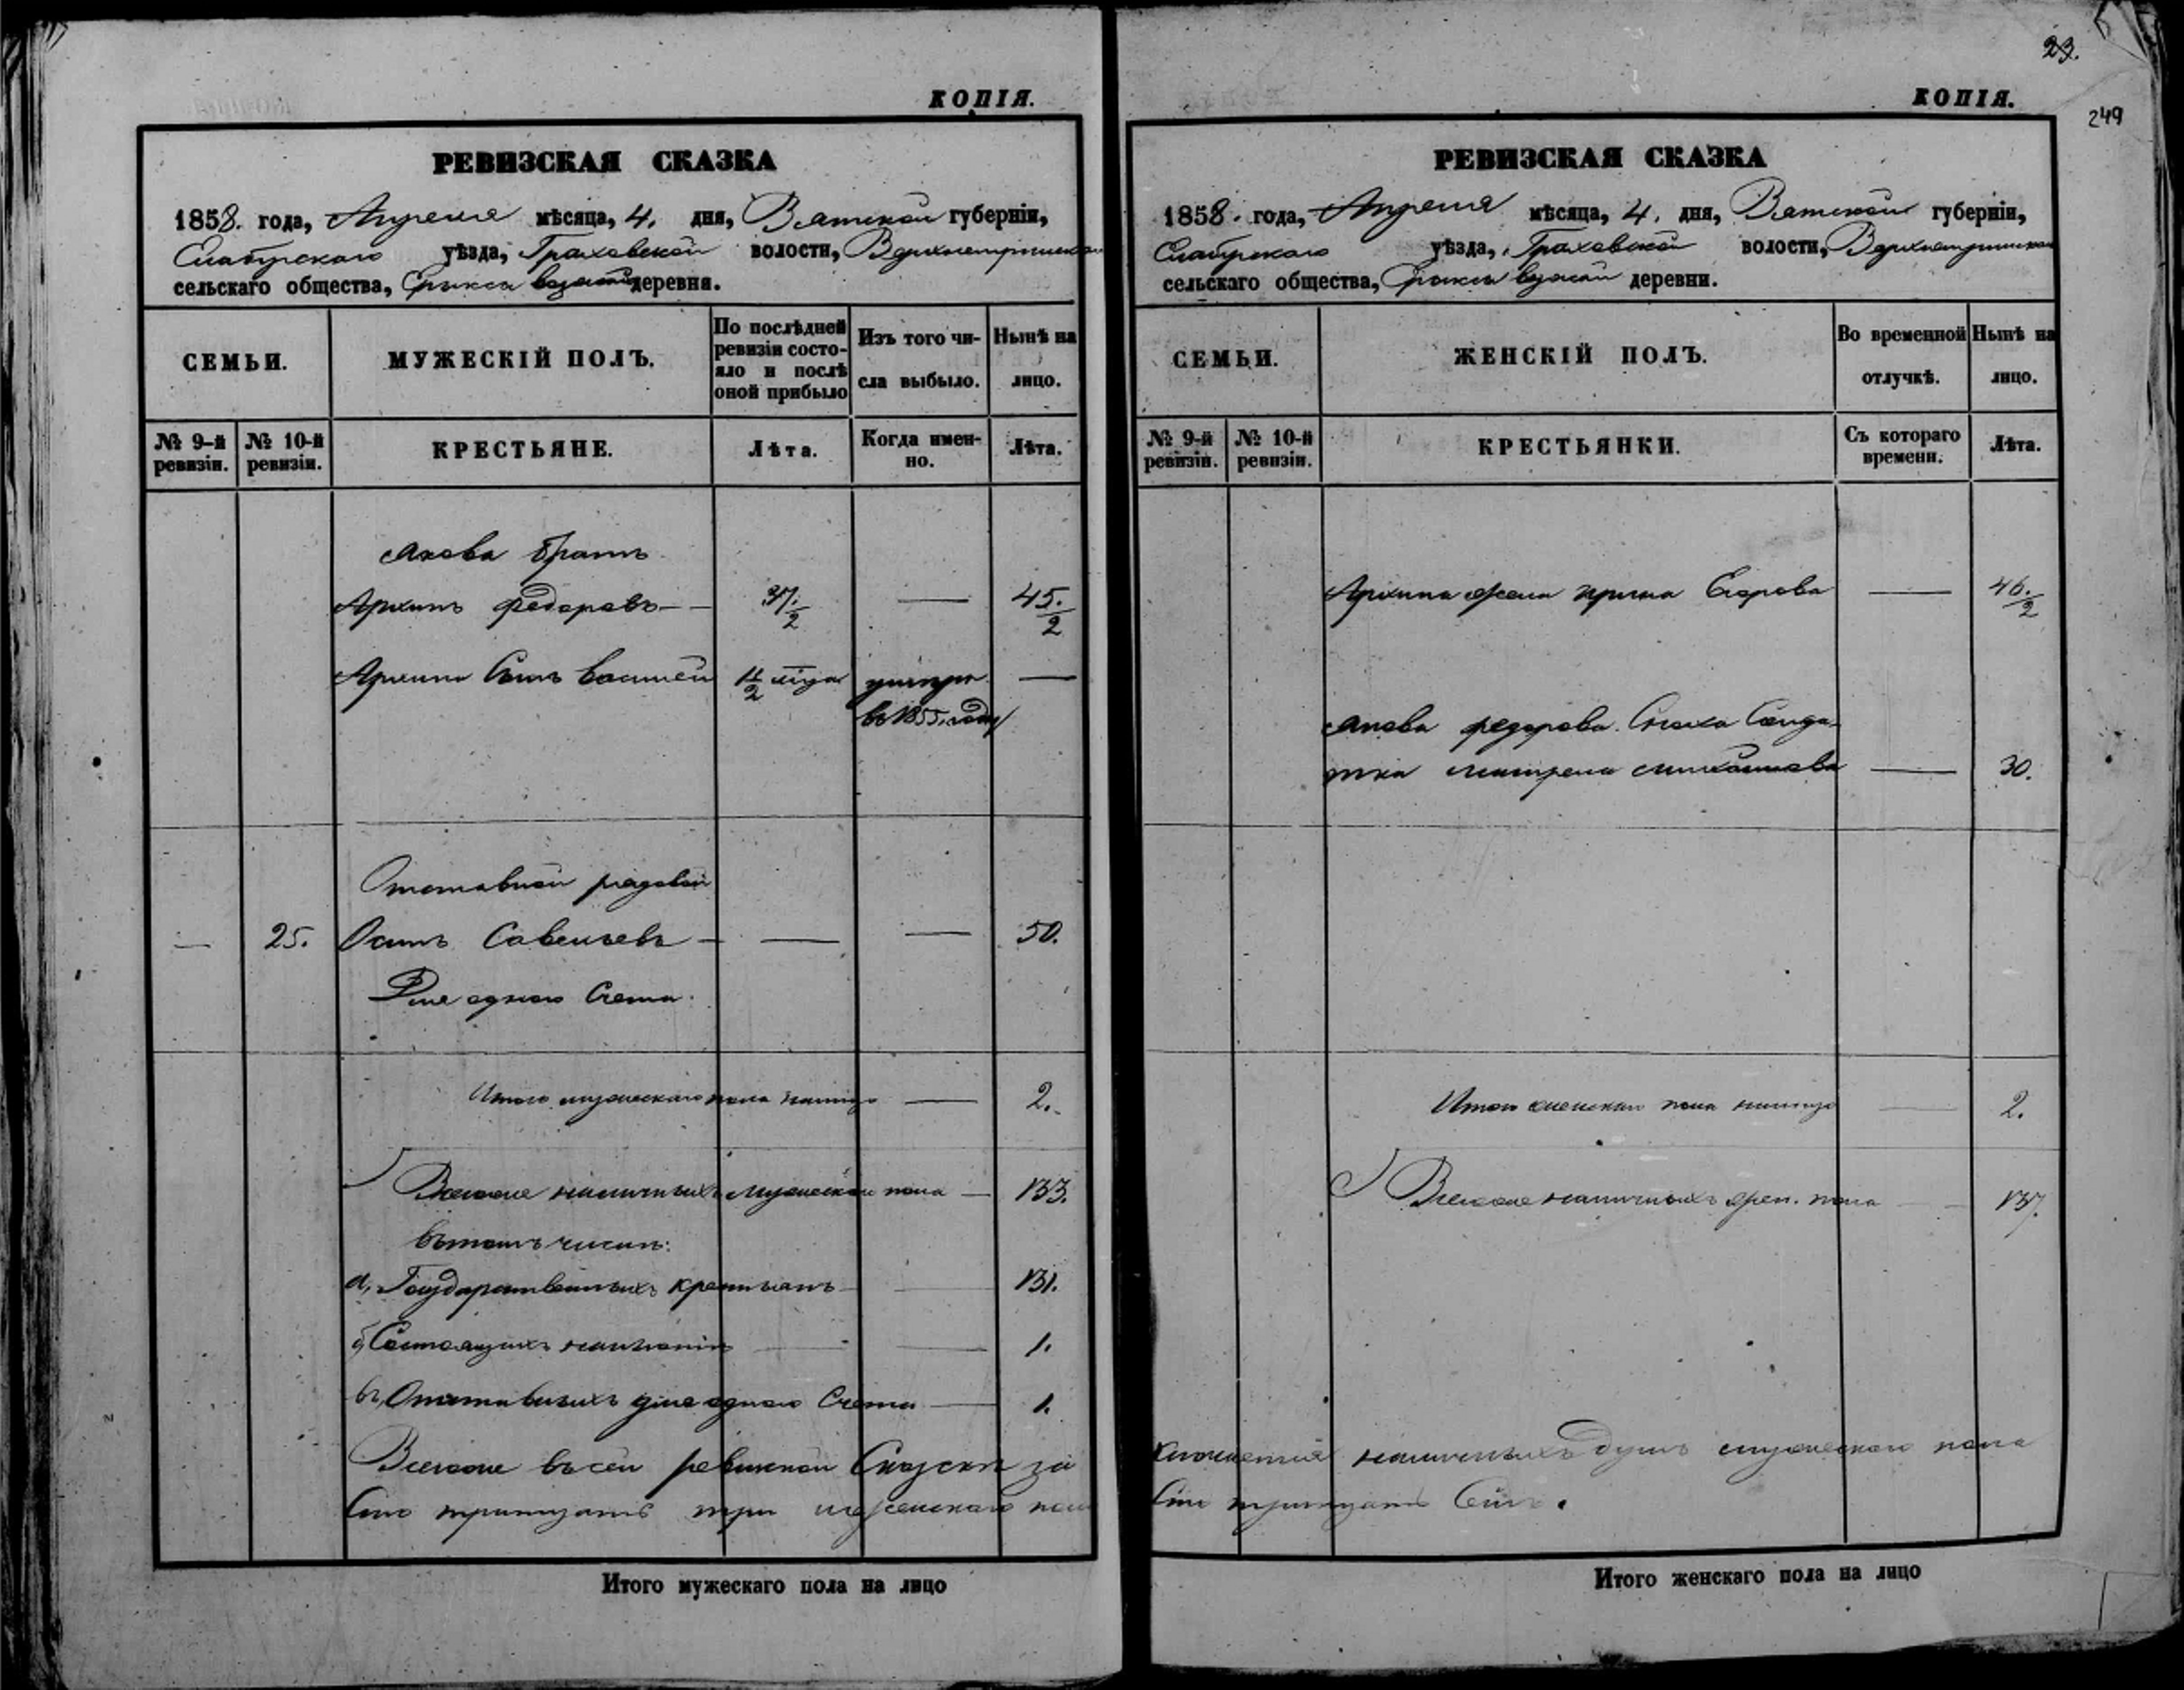 КОПІЯ.
РЕВИЗСКАЯ СКАЗКА
1858. года, Апреля мѣсяца, 4. дня, Вятской губерніи,
Елабугскаго уѣзда, Граховской волости,
сельскаго общества, деревни.
СЕМЬИ.
МУЖЕСКІЙ ПОЛЪ.
По послѣдней ревизіи состояло и послѣ оной прибыло
Изъ того числа выбыло.
Нынѣ на лицо.
№ 9-й ревизіи.
№ 10-й ревизіи.
КРЕСТЬЯНЕ.
Лѣта.
Когда именно.
Лѣта.
Якова братъ
Архипъ Федоровъ — 37. 2 — 45. 2
Архипа Сынъ Василей 11/2 умеръ —
въ 1855. году
Отставной рядовой
— 25. Осипъ Савельевъ — — — 50.
Для одного Счета.
Итого мужескаго пола налицо — 2.
Всего наличныхъ мужескаго пола — 133.
въ томъ числѣ:
а, Государственныхъ крестьянъ — 131.
б, Состоящихъ — 1.
въ, Отставныхъ для одного Счета — 1.
Всего въ сей ревизской Сказкѣ за
Сто тридцать три женскаго пола
Итого мужескаго пола на лицо
23.
249
КОПІЯ.
РЕВИЗСКАЯ СКАЗКА
1858. года, Апреля мѣсяца, 4. дня, Вятской губерніи,
Елабугскаго уѣзда, Граховской волости,
сельскаго общества, деревни.
СЕМЬИ.
ЖЕНСКІЙ ПОЛЪ.
Во временной отлучкѣ.
Нынѣ на лицо.
№ 9-й ревизіи.
№ 10-й ревизіи.
КРЕСТЬЯНКИ.
Съ котораго времени.
Лѣта.
Архипа жена Ирина Егорова — 46. 2
Якова Федорова Сноха Солда-
тка Матрена Михайлова — 30.
Итого женскаго пола налицо — 2.
Всего наличныхъ жен. пола — 137.
ключается наличныхъ душъ мужескаго пола
Сто тридцать Семь.
Итого женскаго пола на лицо